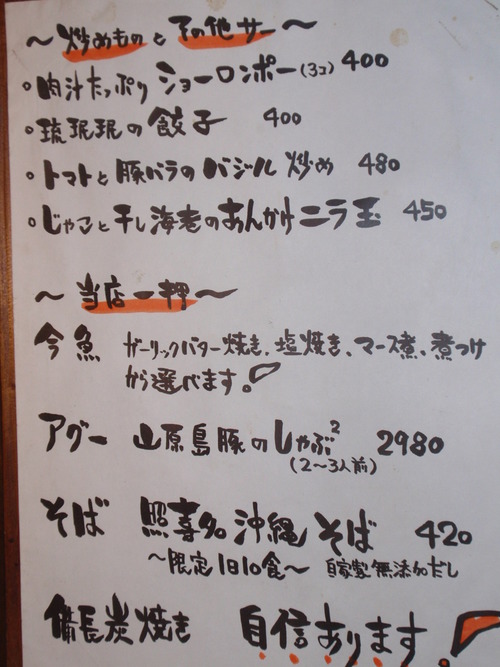 ～炒めものとその他サー～
・肉汁たっぷりショーロンポー(3コ) 400
・琉珉珉の餃子 400
・トマトと豚バラのバジル炒め 480
・じゃこと干し海老のあんかけニラ玉 450
～当店一押～
今魚 ガーリックバター焼き、塩焼き、マース煮、煮つけ
から選べます。
アグー 山原島豚のしゃぶ² 2980
(2～3人前)
そば 照喜名沖縄そば 420
～限定1日10食～ 自家製無添加だし
備長炭焼き 自信あります。